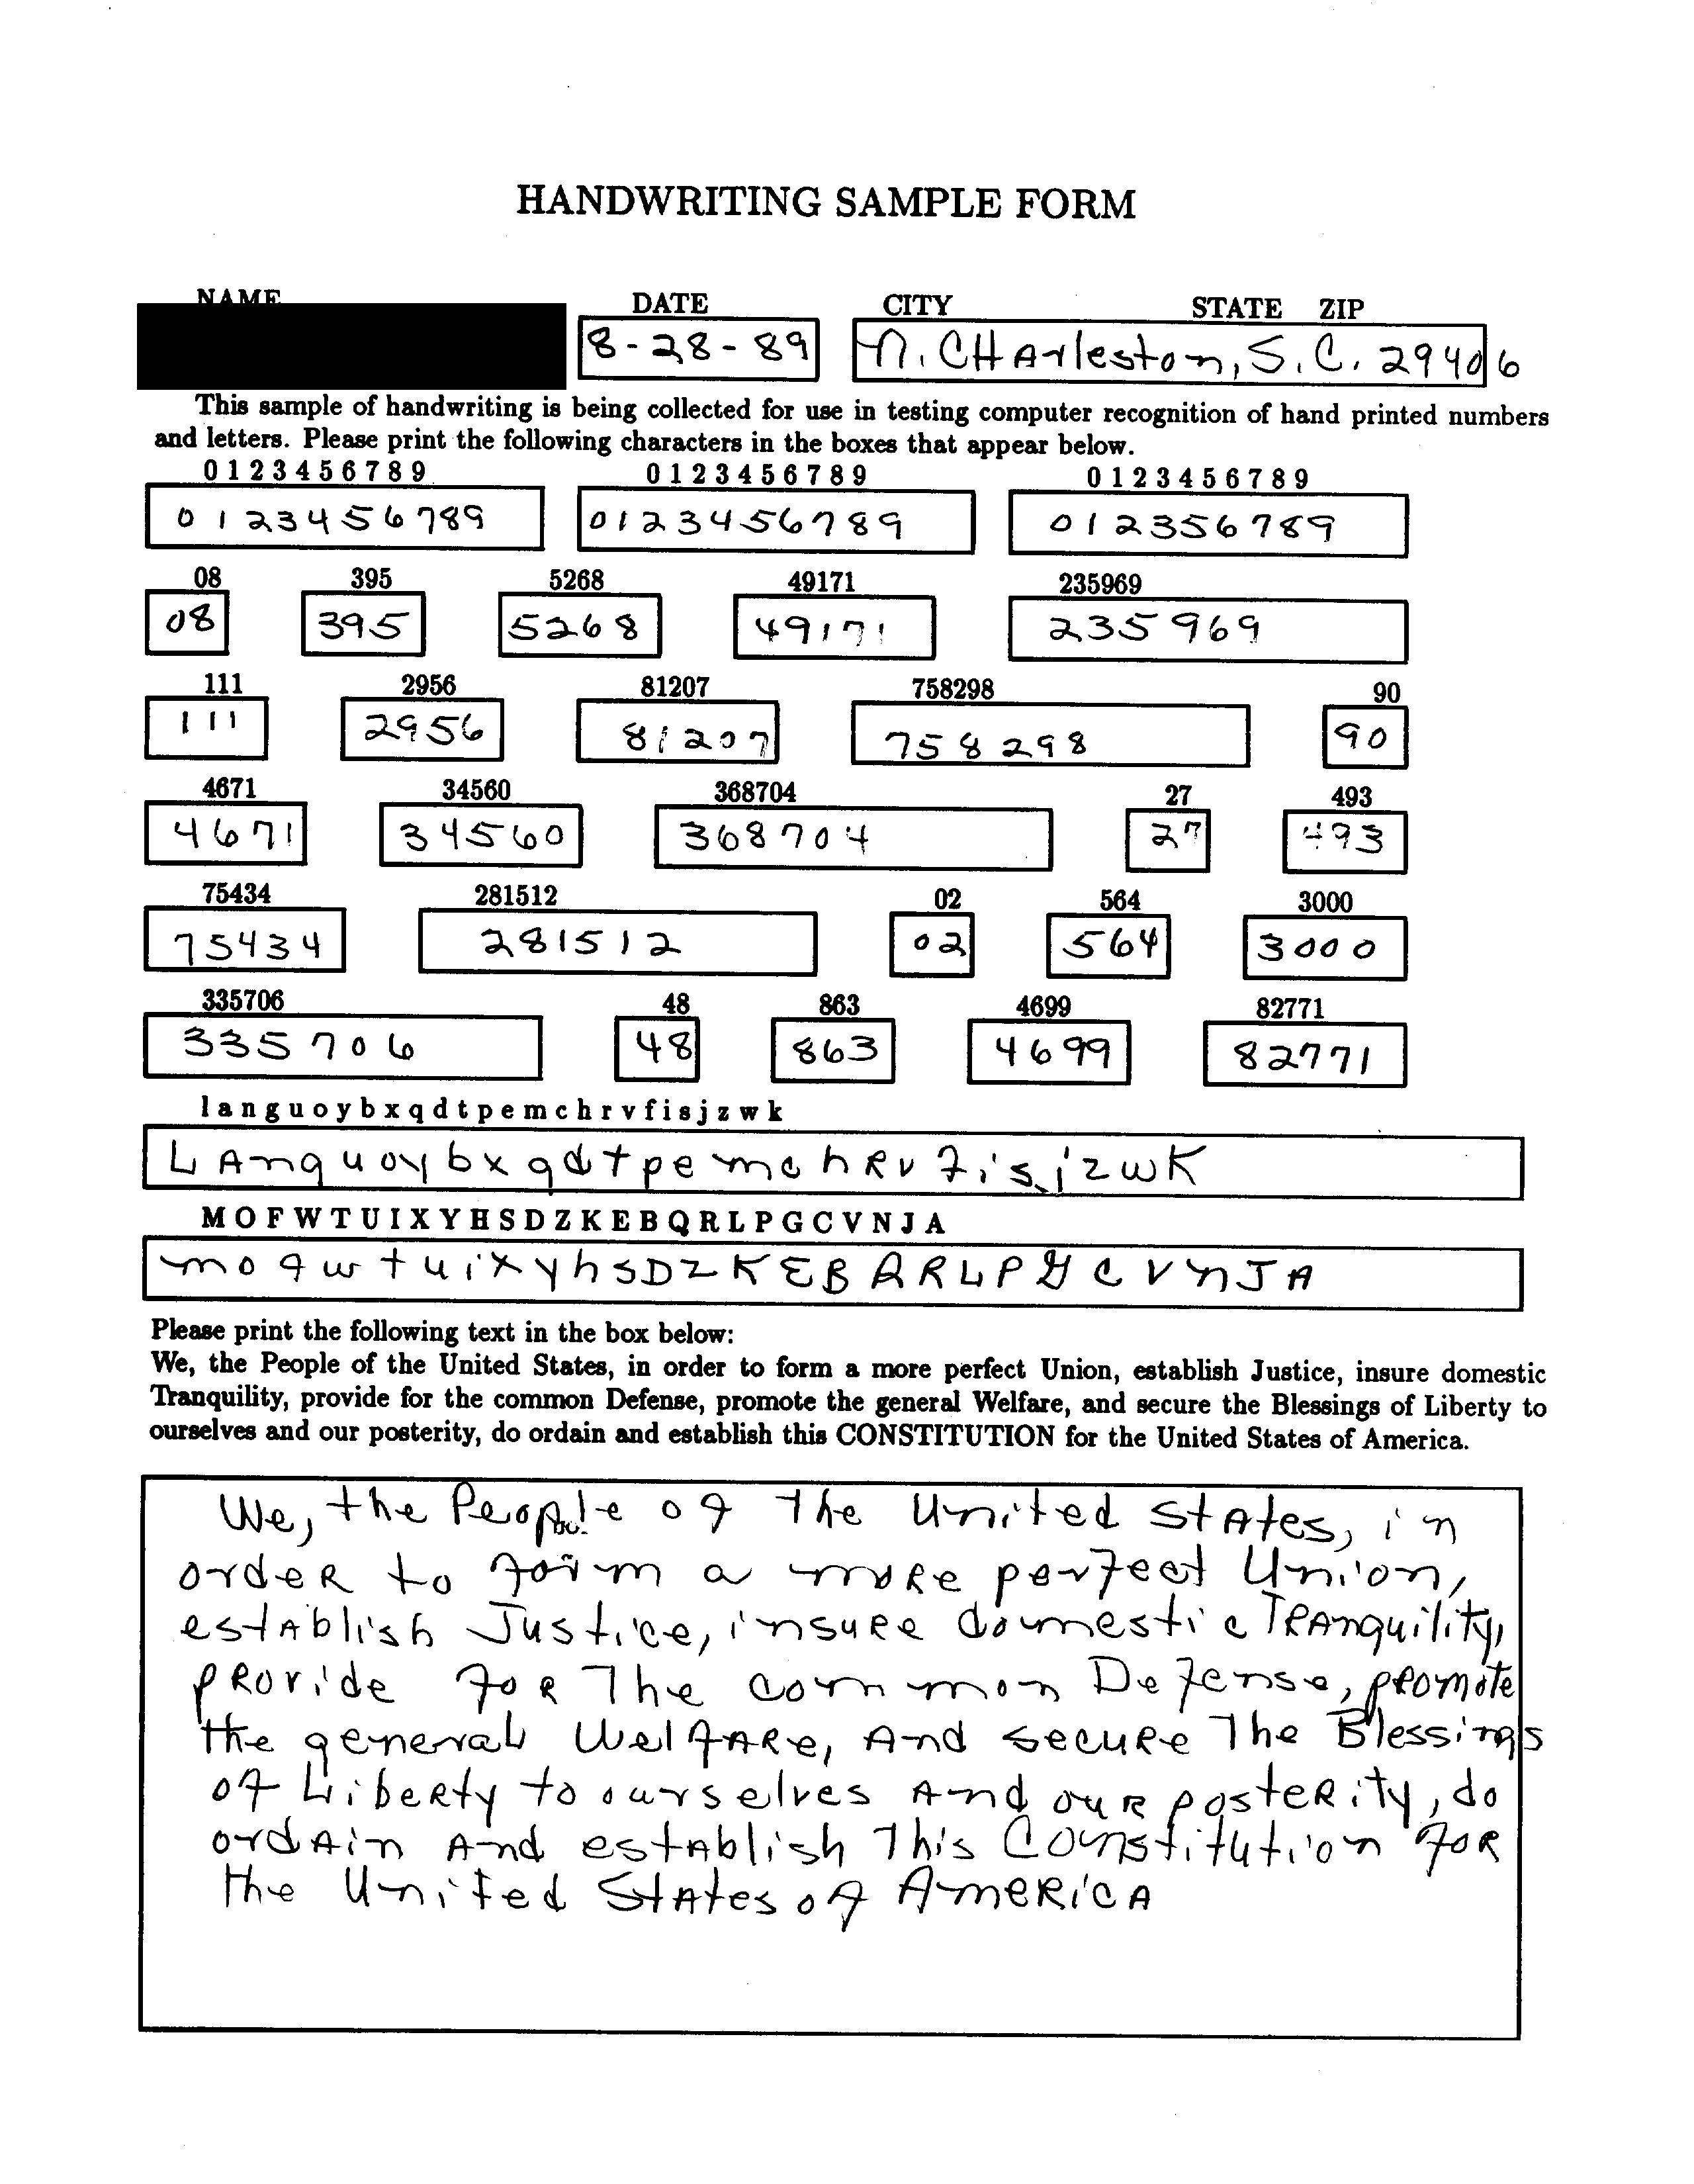 HANDWRITING SAMPLE FORM
NAME DATE CITY STATE ZIP
8-28-89 N. CHArleston, S.C. 29406
This sample of handwriting is being collected for use in testing computer recognition of hand printed numbers
and letters. Please print the following characters in the boxes that appear below.
0 1 2 3 4 5 6 7 8 9 0 1 2 3 4 5 6 7 8 9 0 1 2 3 4 5 6 7 8 9
0 1 2 3 4 5 6 7 8 9 0 1 2 3 4 5 6 7 8 9 0 1 2 3 5 6 7 8 9
08 395 5268 49171 235969
08 395 5268 49171 235969
111 2956 81207 758298 90
111 2956 81207 758298 90
4671 34560 368704 27 493
4671 34560 368704 27 493
75434 281512 02 564 3000
75434 281512 02 564 3000
335706 48 863 4699 82771
335706 48 863 4699 82771
l a n g u o y b x q d t p e m c h r v f i s j z w k
L A n g u o y b x q d t p e m c h R v f i s j z w K
M O F W T U I X Y H S D Z K E B Q R L P G C V N J A
m o f w t u i x y h s D Z K E B Q R L P G C V N J A
Please print the following text in the box below:
We, the People of the United States, in order to form a more perfect Union, establish Justice, insure domestic
Tranquility, provide for the common Defense, promote the general Welfare, and secure the Blessings of Liberty to
ourselves and our posterity, do ordain and establish this CONSTITUTION for the United States of America.
We, the People of The United StAtes, in
ordeR to form a moRe perfect Union,
estAblish Justice, insuRe domestic TRAnquility,
pRovide foR The common Defense, pRomote
the general WelfARe, And secuRe The Blessings
of LibeRty to ourselves And ouR posteRity, do
ordAin And estAblish This Constitution foR
the United StAtes of AmeRicA